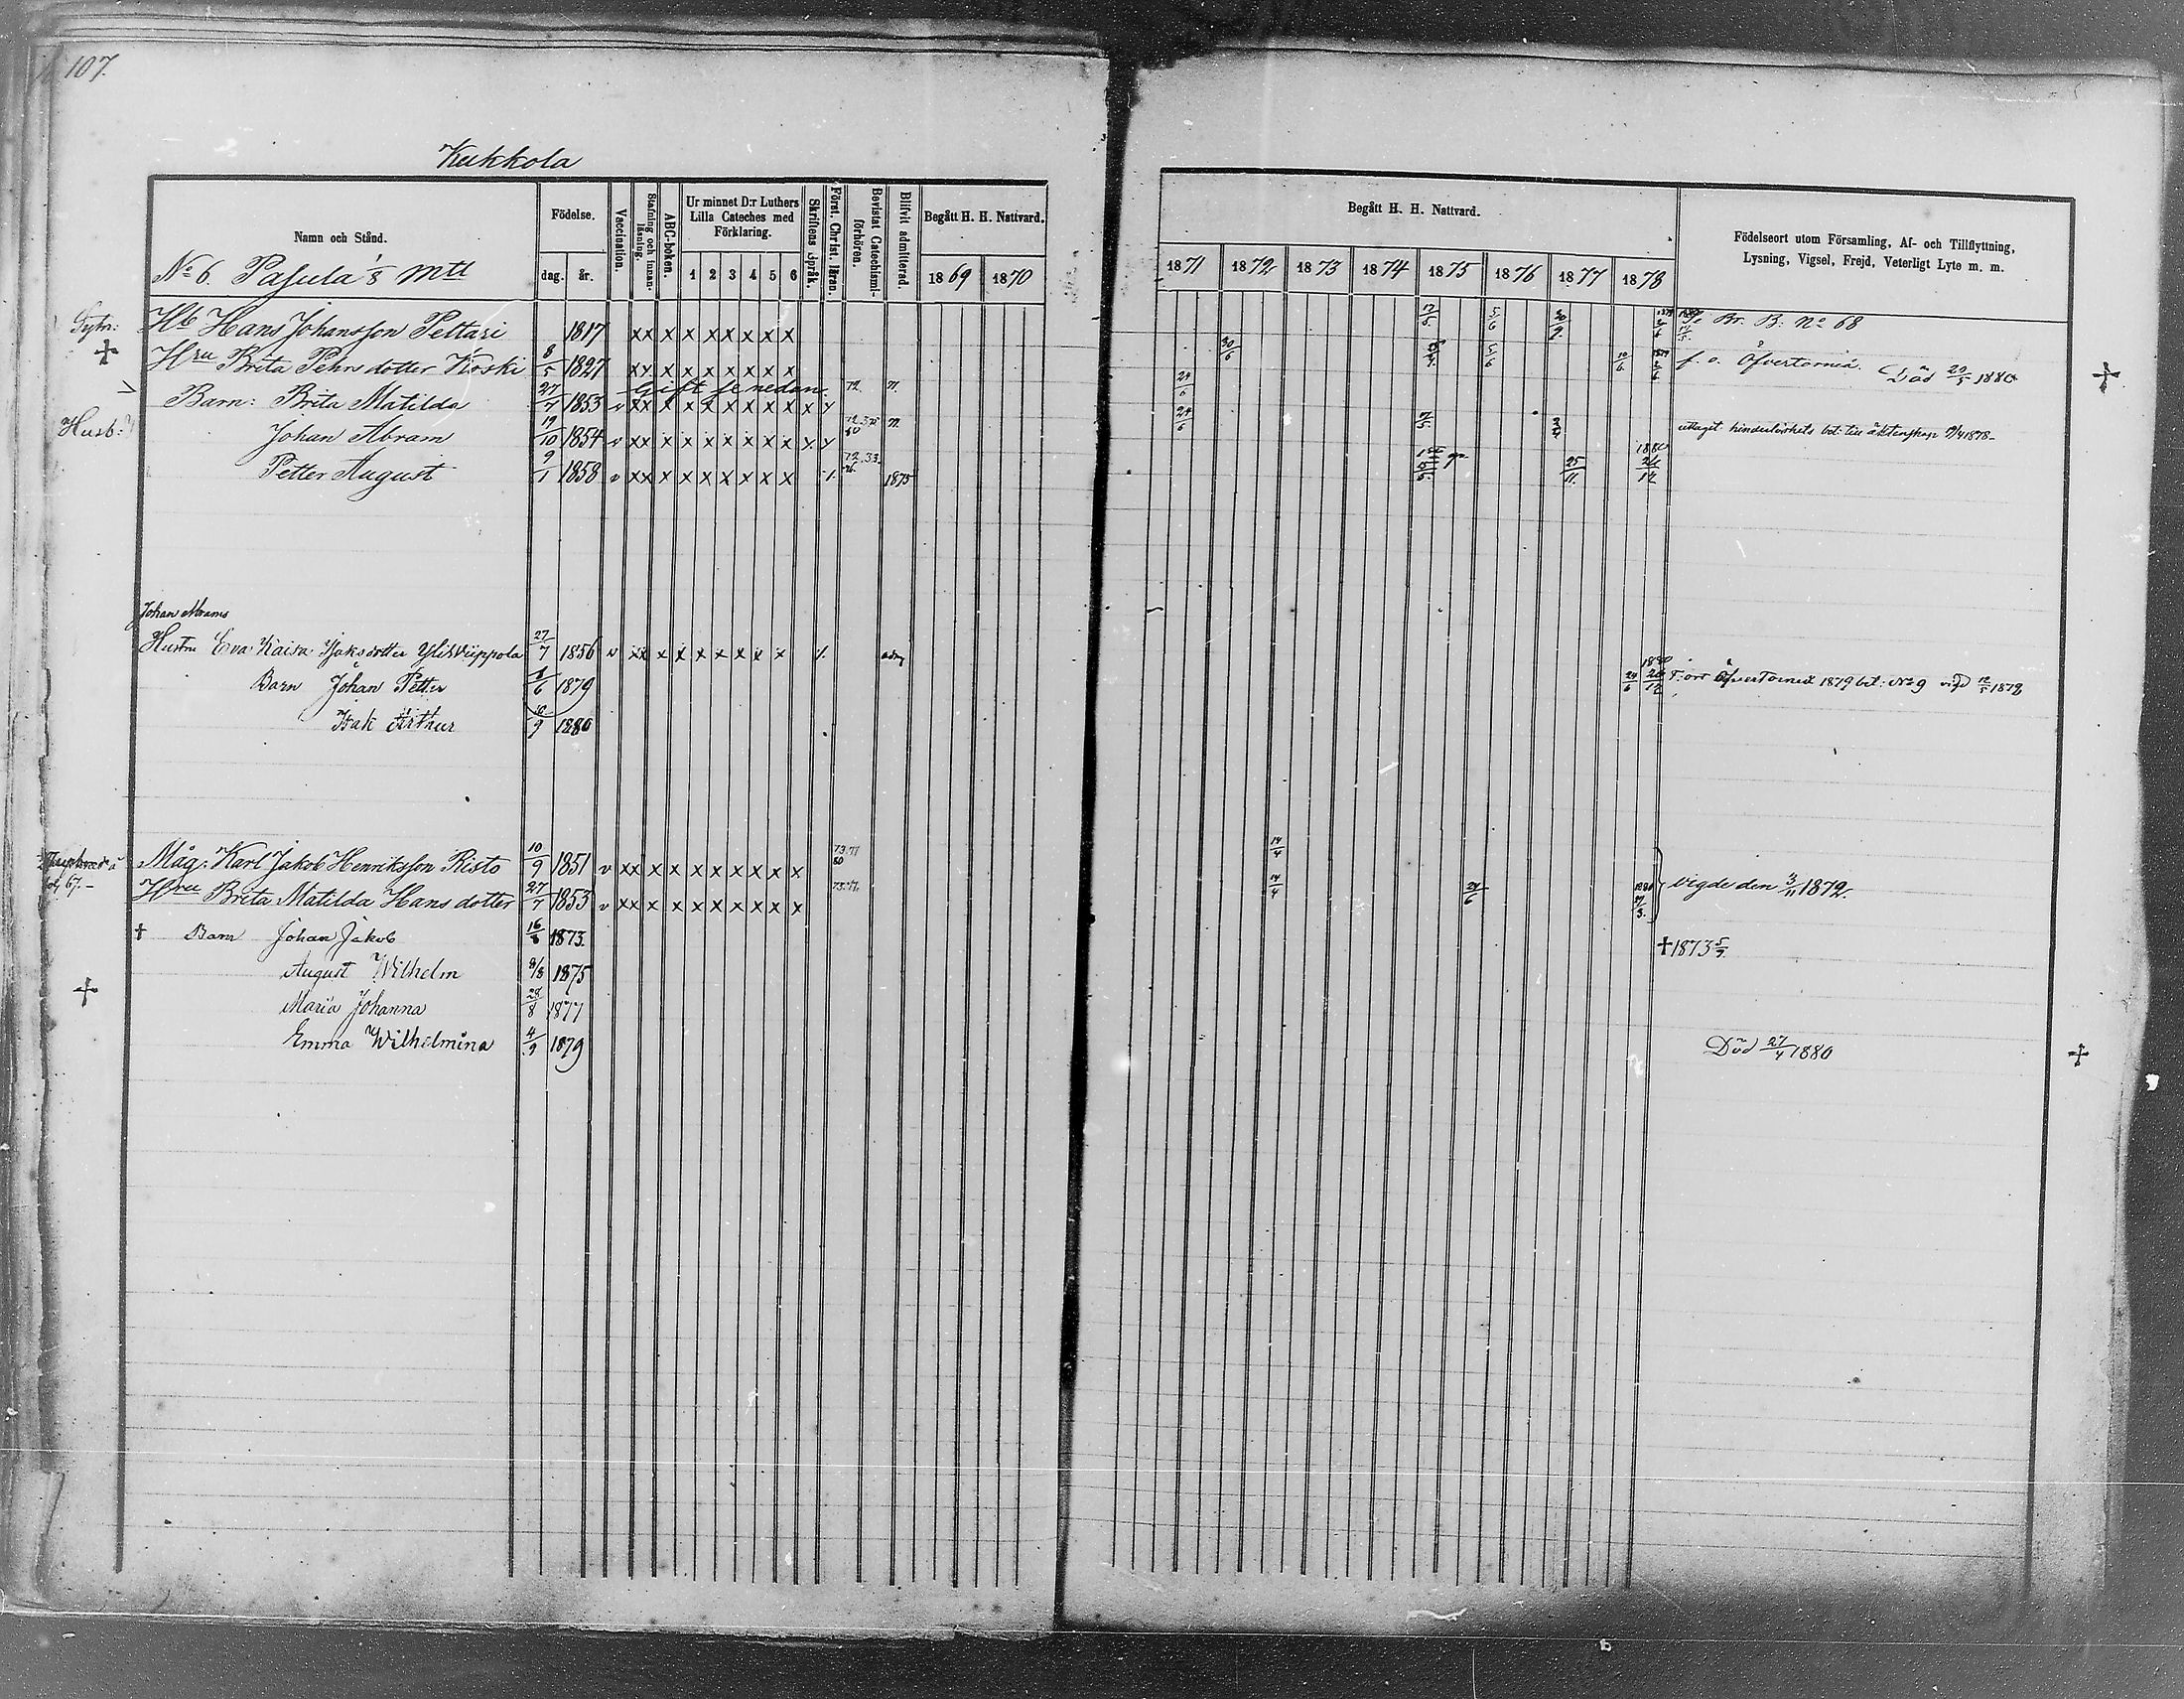 107.
Kukkola
Namn och Stånd.
Födelse.
dag. år.
Vaccination.
Stafning och innanläsning.
ABC-boken.
Ur minnet D:r Luthers Lilla Cateches med Förklaring.
1 2 3 4 5 6
Skriftens Språk.
Först. Christ. läran.
Bevistat Catechismiförhören.
Blifvit admitterad.
Begått H. H. Nattvard.
1869 1870
Begått H. H. Nattvard.
1871 1872 1873 1874 1875 1876 1877 1878
Födelseort utom Församling, Af- och Tillflyttning,
Lysning, Vigsel, Frejd, Veterligt Lyte m. m.
No 6. Pasula's mtl
Hb Hans Johansson Pettari 1817 xx x x x x x x x 17/5 5/6 30/9 Br. B: No 68
Hru Brita Pehrsdotter Koski 8/5 1827 xx x x x x x x x 30/6 5/6 10/6 1879 f. o. Öfvertorneå. Död 20/5 1880
Gift se nedan
Barn: Brita Matilda 27/7 1853 v xx x x x x x x x x 72. n. 24/6
Husb: Johan Abram 19/10 1854 v xx x x x x x x x 80 n. 24/6 uttagit hinderlöshets bet. till äktenskap 1878
Petter August 9/1 1858 v xx x x x x x x x 72.33. 1875 25/11 1880
Johan Abrams
Hustru Eva Kaisa Isaksdotter Yliviippola 27/7 1856 v xx x x x x x x x 1880 24/6 Öfvertorneå 1879 bet: No 9 vigd 12/5 1878
Barn Johan Petter 8/6 1879
Isak Arthur 9 1880
fol 67.
Måg: Karl Jakob Henriksson Risto 10/9 1851 v xx x x x x x x x 73.77 80 14/4
Hru Brita Matilda Hansdotter 27/7 1853 v xx x x x x x x x 73.77. 14/4 24/6 1880 Vigde den 3/11 1872.
† Barn Johan Jakob 16/8 1873. † 1873 5/9
August Wilhelm 8/8 1875
Maria Johanna 28/8 1877
Emma Wilhelmina 4/9 1879 Död 27/4 1880